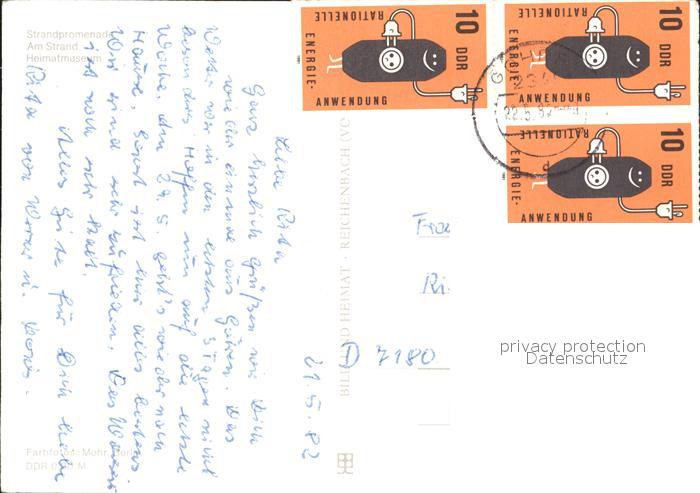 Strandpromenade
Am Strand
Heimatmuseum
21.5.82
Liebe Rita
Ganz herzlich grüßen wir Dich
wieder einmal aus Göhren. Das
Wetter war in den letzten Tagen nicht
Hoffen nun auf die letzte
Woche, am 29.5. geht's wieder nach
Hause. Sonst ist hier alles bestens
Wir sind sehr zufrieden. Das Wasser
ist noch sehr kalt.
Alles Gute für Dich liebe
Rita von Werner u. Doris.
Farbfotos: Mohr, Berlin
DDR
BILD UND HEIMAT · REICHENBACH (VOGTL)
Frau
Ri
D 7180
10 DDR
RATIONELLE
ENERGIE-
ANWENDUNG
10 DDR
RATIONELLE
ENERGIE-
ANWENDUNG
10 DDR
RATIONELLE
ENERGIE-
ANWENDUNG
22.5.82
privacy protection
Datenschutz